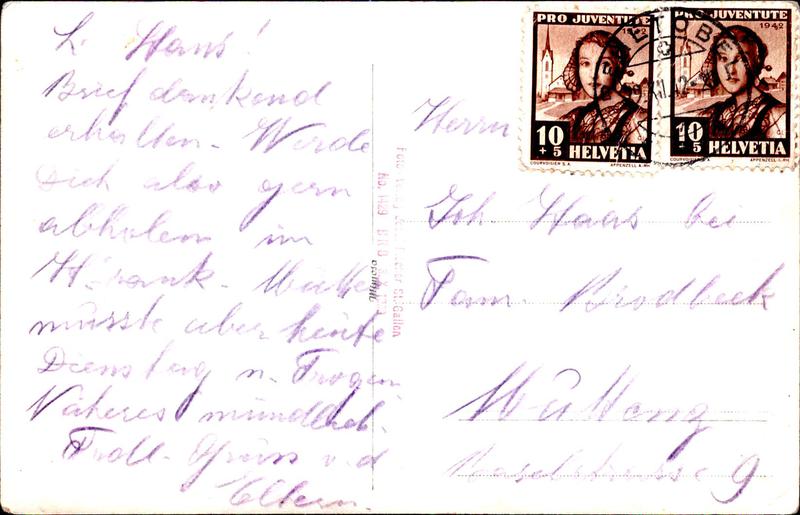 L. Hans!
Brief dankend
erhalten. Werde
Dich also gern
abholen im
Mutter
müsste aber heute
Dienstag n. Trogen
Näheres mündlich.
Frdl. Gruss v. d.
Eltern.
PRO JUVENTUTE
1942
10
+5
HELVETIA
COURVOISIER S.A.
APPENZELL I.-RH.
PRO JUVENTUTE
1942
10
+5
HELVETIA
COURVOISIER S.A.
APPENZELL I.-RH.
Herrn
Joh. Haas bei
Fam. Brodbeck
Muttenz
Baselstrasse 9
Foto
St. Gallen
No. 1929